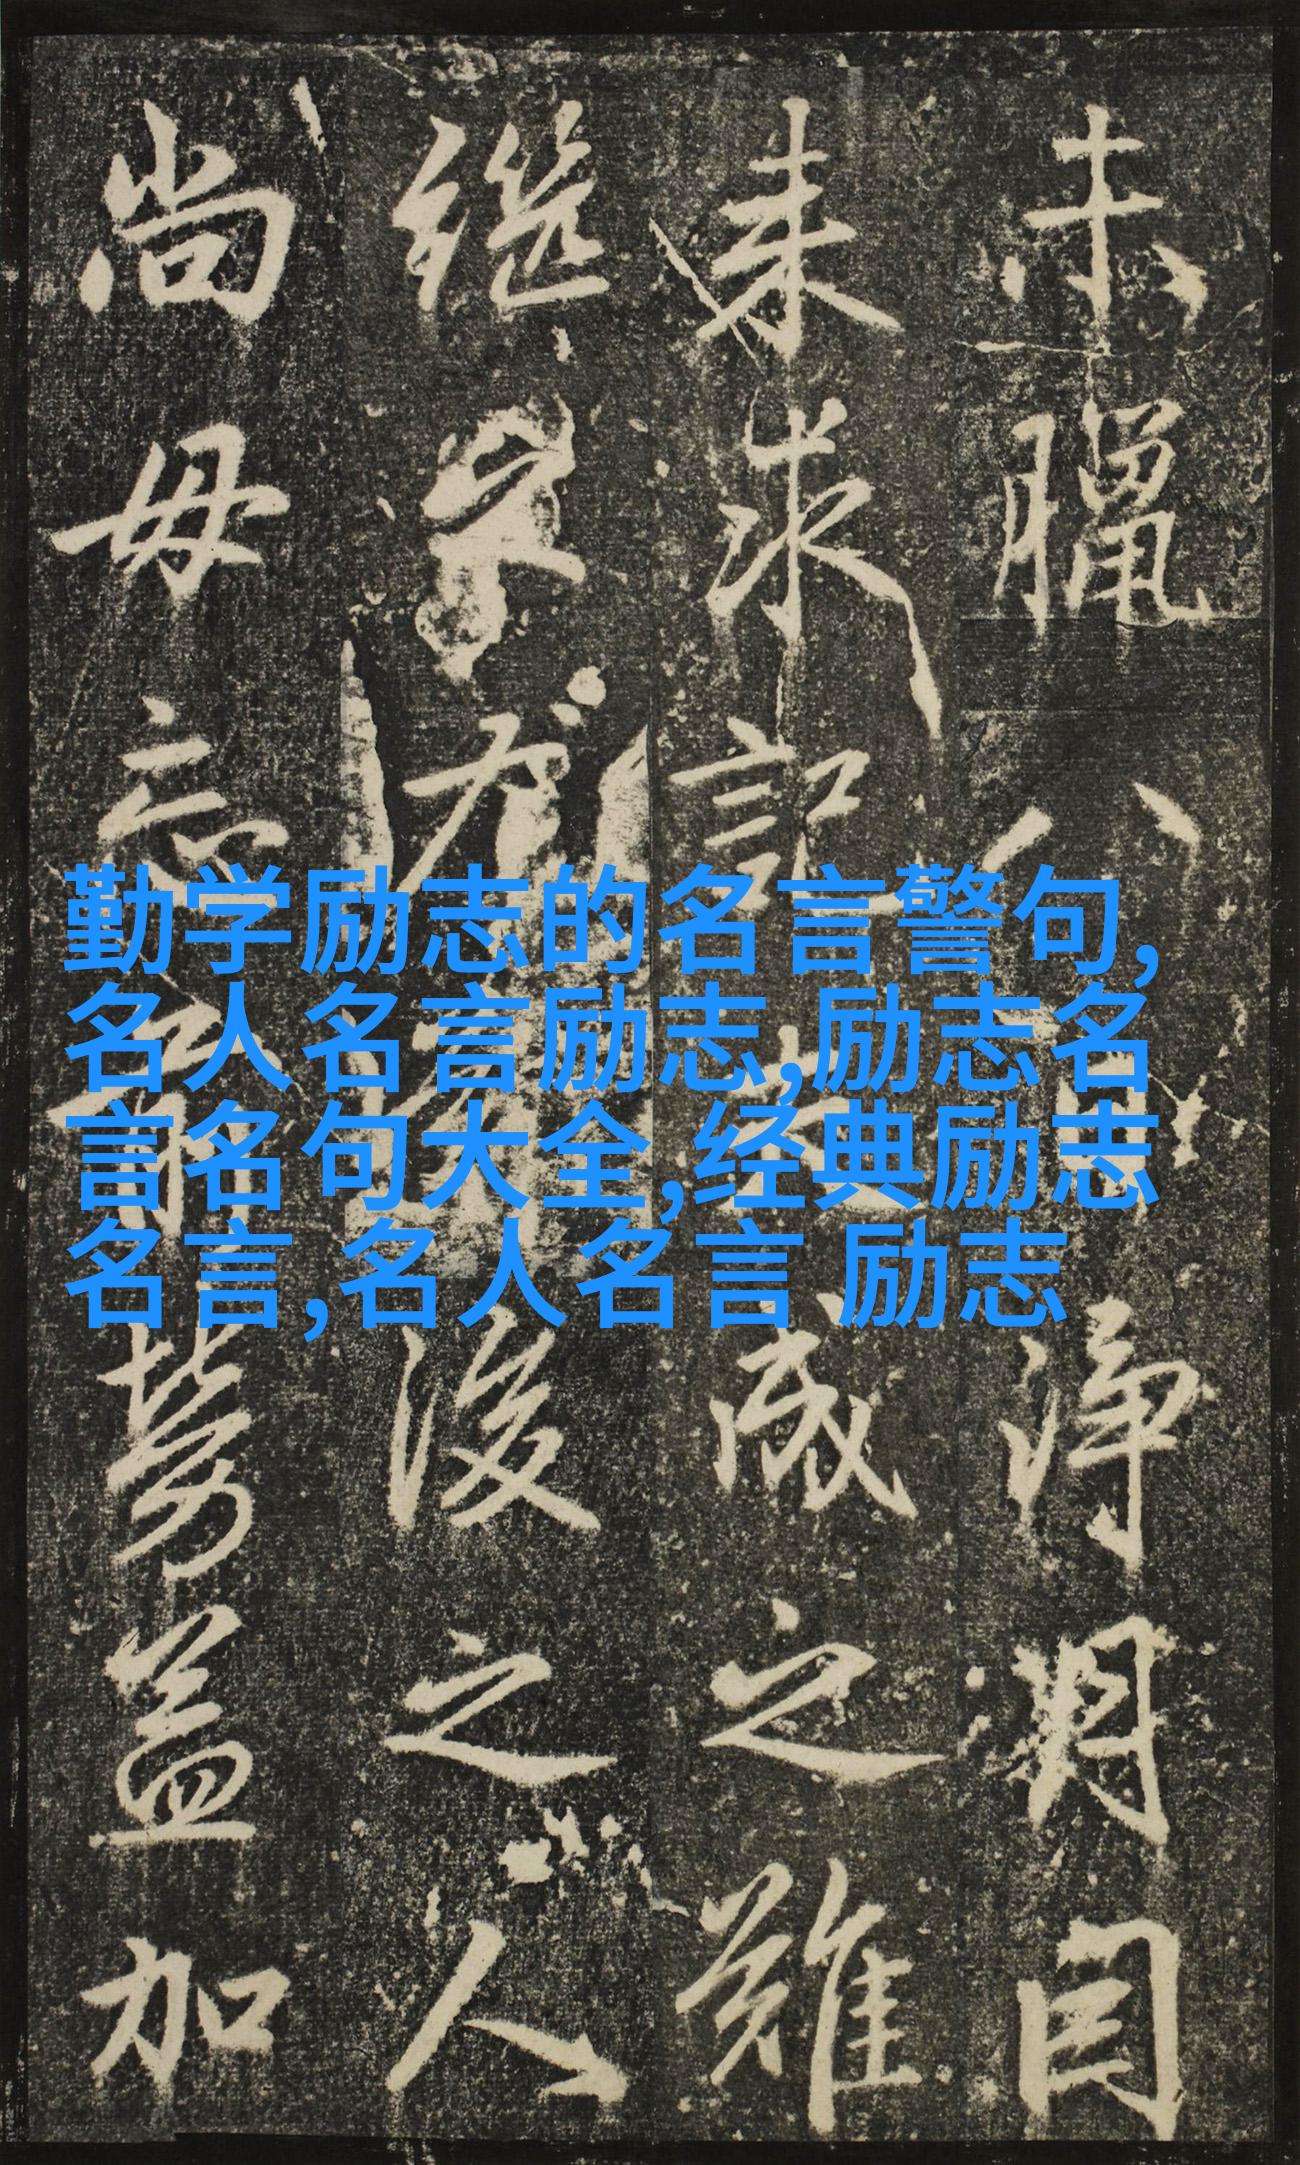 勤学励志的名言警句,
名人名言励志,励志名
言名句大全,经典励志
名言,名人名言 励志
未臘八淨
来求記成之難
繼後之人
尚毋忘益加